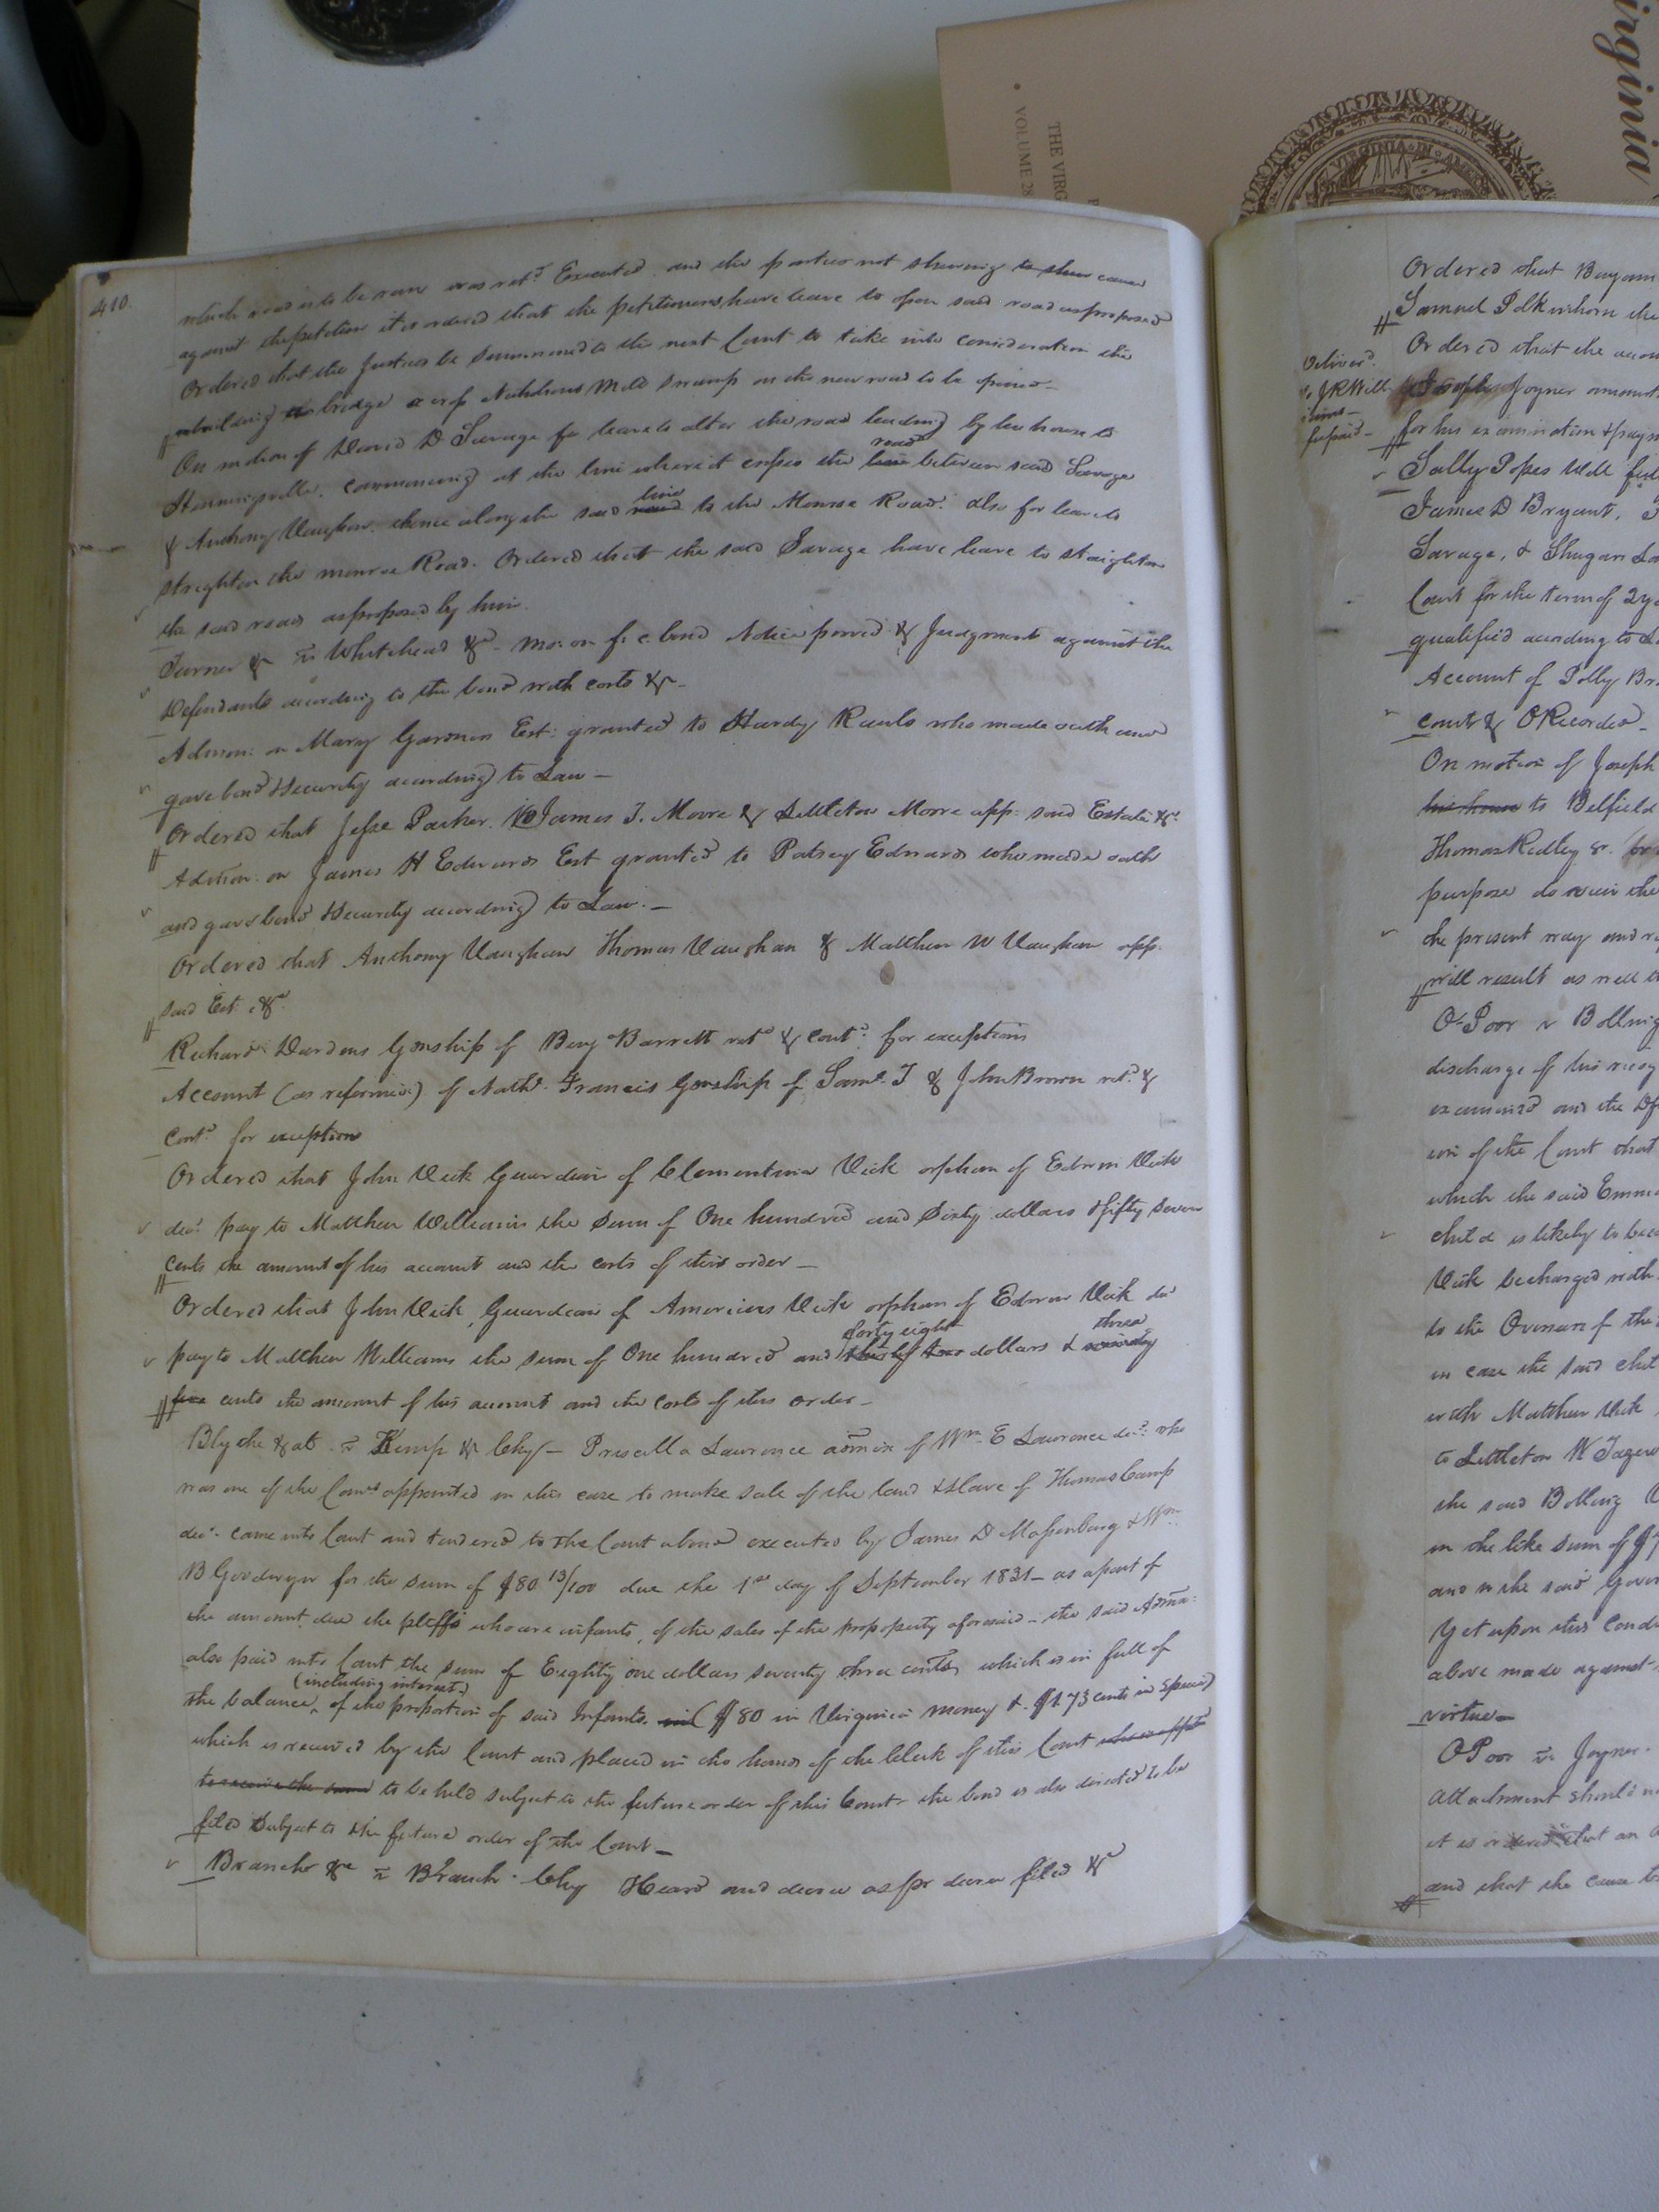 irginia
THE VIRG
VOLUME 28
VIRGINIA IN AMER
410.
which road is to be run was retd. Executed and the parties not shewing to shew cause
against the petition it is ordered that the petitioners have leave to open said road as proposed
Ordered that the Justices be Summoned to the next Court to take into consideration the
building bridge Mill swamp on the new road to be opened-
On motion of David D Savage for leave to alter the road leading by his house to
Henningsville. commencing at the line where it crosses the line road between said Savage
& Anthony Vaughan. thence along the said road line to the Monroe Road. Also for leave to
streghten the monroe Road. Ordered that the said Savage have leave to staighten
the said roads as proposed by him.
Turner &c vs Whitehead &c - Mo: on f: c. bond Notice proved & Judgment against the
Defendants according to the bond with costs &c-
Admon: on Mary Gardners Est: granted to Hardy Rawls who made oath and
gave bond & Security according to Law-
Ordered that Jesse Parker. James T. Moore & Littleton Moore app: said Estate &c.
Admon: on James H Edwards Est granted to Patsey Edwards who made oath
and gave bond & Security according to Law.-
Ordered that Anthony Vaughan Thomas Vaughan & Matthew W Vaughan app.
said Est. &c.
Richard Dardens Gonship of Benj Barrett retd & contd. for exceptions
Account (as reformed) of Nathl. Francis Gonship of Saml. T & John Brown retd. &
Contd. for exceptions
Ordered that John Vick Guardian of Clementina Vick orphan of Edwin Vick
decd. pay to Matthew Williams the sum of One hundred and Sixty dollars & fifty seven
cents the amount of his account and the costs of this order-
Ordered that John Vick, Guardian of Americus Vick orphan of Edwin Vick decd
pay to Matthew Williams the sum of One hundred and forty eight dollars & three seventy
five cents the amount of his account and the costs of this order-
Blythe & al. vs Kemp & Chy/- Priscilla Lawrence admix of Wm. E Lawrence decd. who
was one of the Comrs appointed in this case to make sale of the land & slave of Thomas Camp
decd. came into Court and tendered to the Court a bond executed by James D Massenburg & Wm.
B Goodwyn for the sum of $80 13/100 due the 1st day of September 1831- as a part of
the amount due the pltffs who are infants, of the sales of the propoperty aforesaid- the said Admx:
also paid into Court the sum of Eighty one dollars seventy three cents, which is in full of
the balance, (including interest) of the proportion of said Infants. ($80 in Virginia money & $1.73 cents in Specie)
which is received by the Court and placed in the hands of the Clerk of this Court who is appt
to receive the same to be held subject to the future order of this Court- the bond is also directed to be
filed Subject to the future order of the Court-
Branch &c vs Branch. Chy Heard and decree as pr decree filed &c
Ordered that Benjam
Samuel Polkinhorn the
Ordered that the accou
Joseph Joyner amount
for his examination & paym
Sally Popes Will
James D Bryant,
Savage, & Shugars
Court for the term of 2 y
qualified according to L
Account of Polly Br
court & ORecorded-
On motion of Joseph
his house to Belfield
Thomas Ridley Sr.
purpose do view the
the present way and
will result as well
O. Poor v Bolling
discharge of his recog
examined and the
ion of the Court that
which the said Emm
child is likely to bec
Vick be charged with
to the Overs of the
in case the said chil
with Matthew Vick
to Littleton W Tazew
the said Bolling
in the like sum of $
and to the said Gover
Yet upon this Condi
above made against
virtue-
OPoor vs Joyner.
Attachment should
it is ordered that an
and that the cause